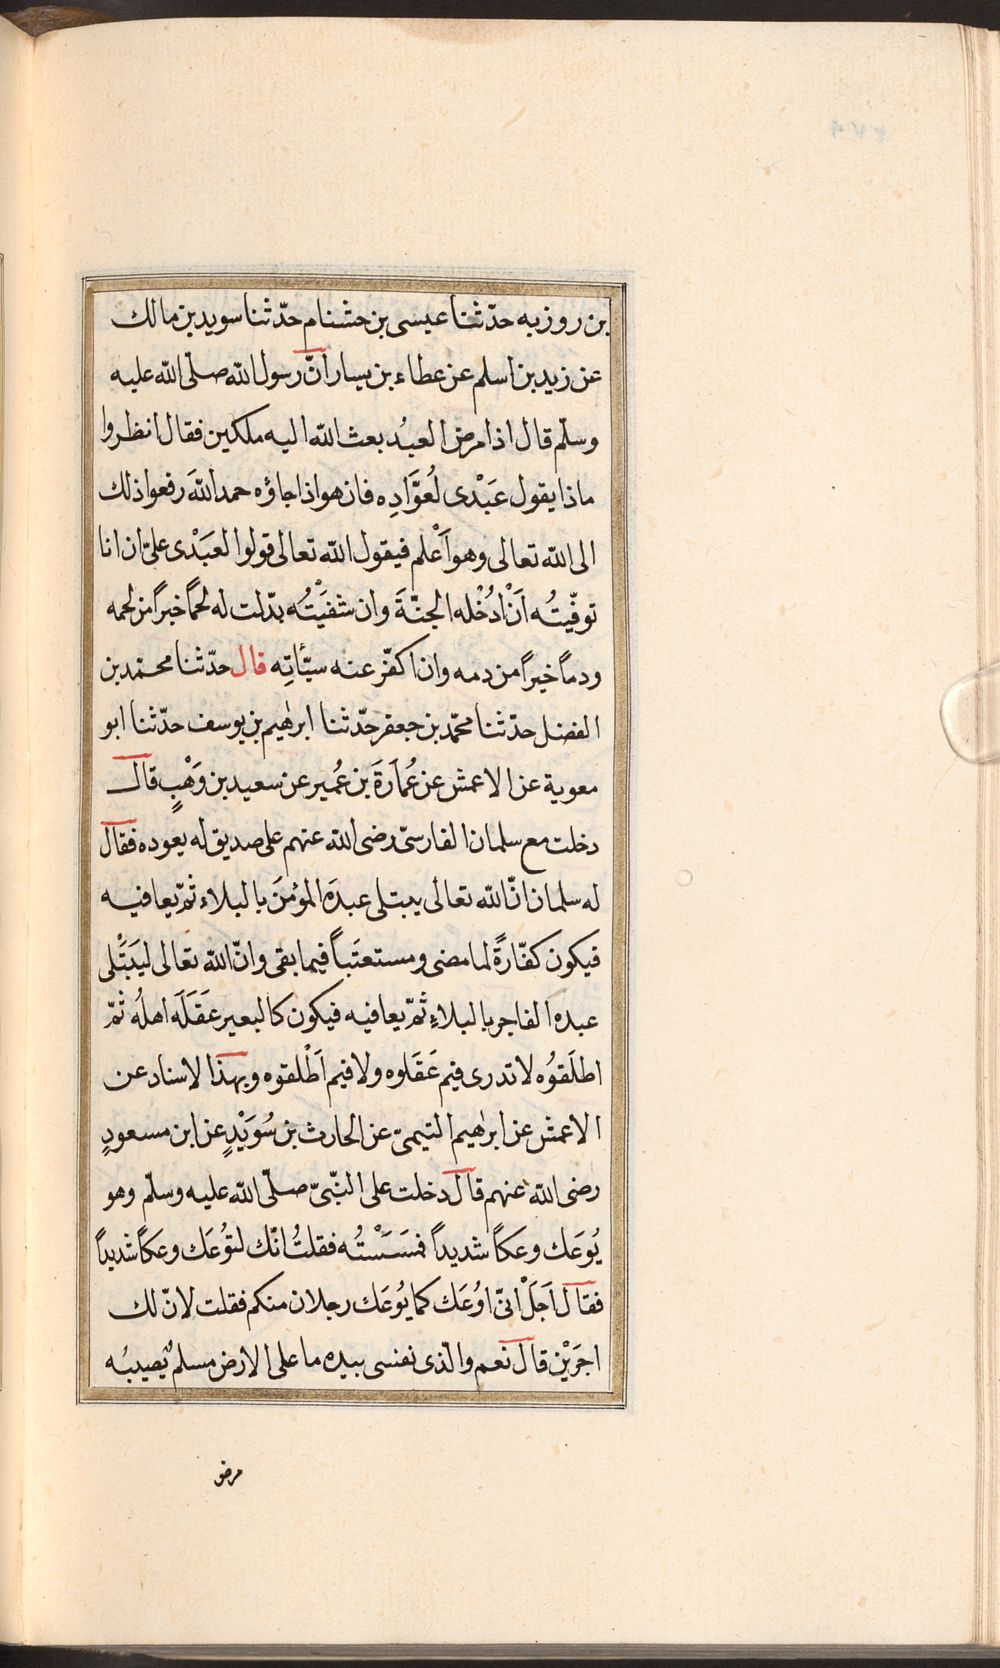 بن روزبه حدّثنا عيسى بن خشنام حدّثنا سويد بن مالك
عن زيد بن اسلم عن عطاء بن يسار انّ رسول الله صلّى الله عليه
وسلّم قال اذا مرض العبدُ بعث الله اليه ملكين فقال انظروا
ماذا يقول عَبْدى لعُوَّادِه فان هو اذا جاؤه حمد اللهَ رفعوا ذلك
الى الله تعالى وهو اَعْلم فيقول الله تعالى قولوا لعَبَدْى علىّ ان انا
توفّيتُه اَنْ اُدُخْله الجنّةَ وان شفَيْتُه بدّلت له لحمًا خيرًا من لحمه
ودمًا خيرًا من دمه وان اكفّر عنه سيّأتِه قال حدّثنا محمّد بن
الفضل حدّثنا محمّد بن جعفر حدّثنا ابرهيم بن يوسف حدّثنا ابو
معوية عن الاعمش عن عُمارَةَ بن عُمير عن سعيد بن وَهْبٍ قال
دخلت مع سلمان الفارسىّ رضى الله عنهم على صديق له يعوده فقال
له سلمان انّ الله تعالى يبتلى عبدَه المؤمنَ بالبلاء ثمّ يعافيه
فيكون كفّارةً لما مضى ومستعتَباً فيما بقى وانّ الله تعالى ليَبَتْلى
عبده الفاجر بالبلاءِ ثمّ يعافيه فيكون كالبعير عَقَلَه اهلُه ثمّ
اطلَقوُه لا تدرى فيم عَقَلوه ولا فيم اَطْلقوه وبهذا الاسناد عن
الاعمش عن ابرهيم التيمىّ عن الحارث بن سُوَيْدٍ عن ابن مسعودٍ
رضى الله عنهم قال دخلت على النبّىّ صلّى الله عليه وسلّم وهو
يُوعَك وعكاً شديداً فمَسَسْتُه فقلتُ انّك لتوُعَك وعكاً شديداً
فقال اَجَلْ انىّ اوُعَك كما يُوعَك رجلان منكم فقلت لانّ لك
اجرَيْن قال نعم والّذى نفسى بيده ما على الارض مسلمٌ يُصيبُه
مرض